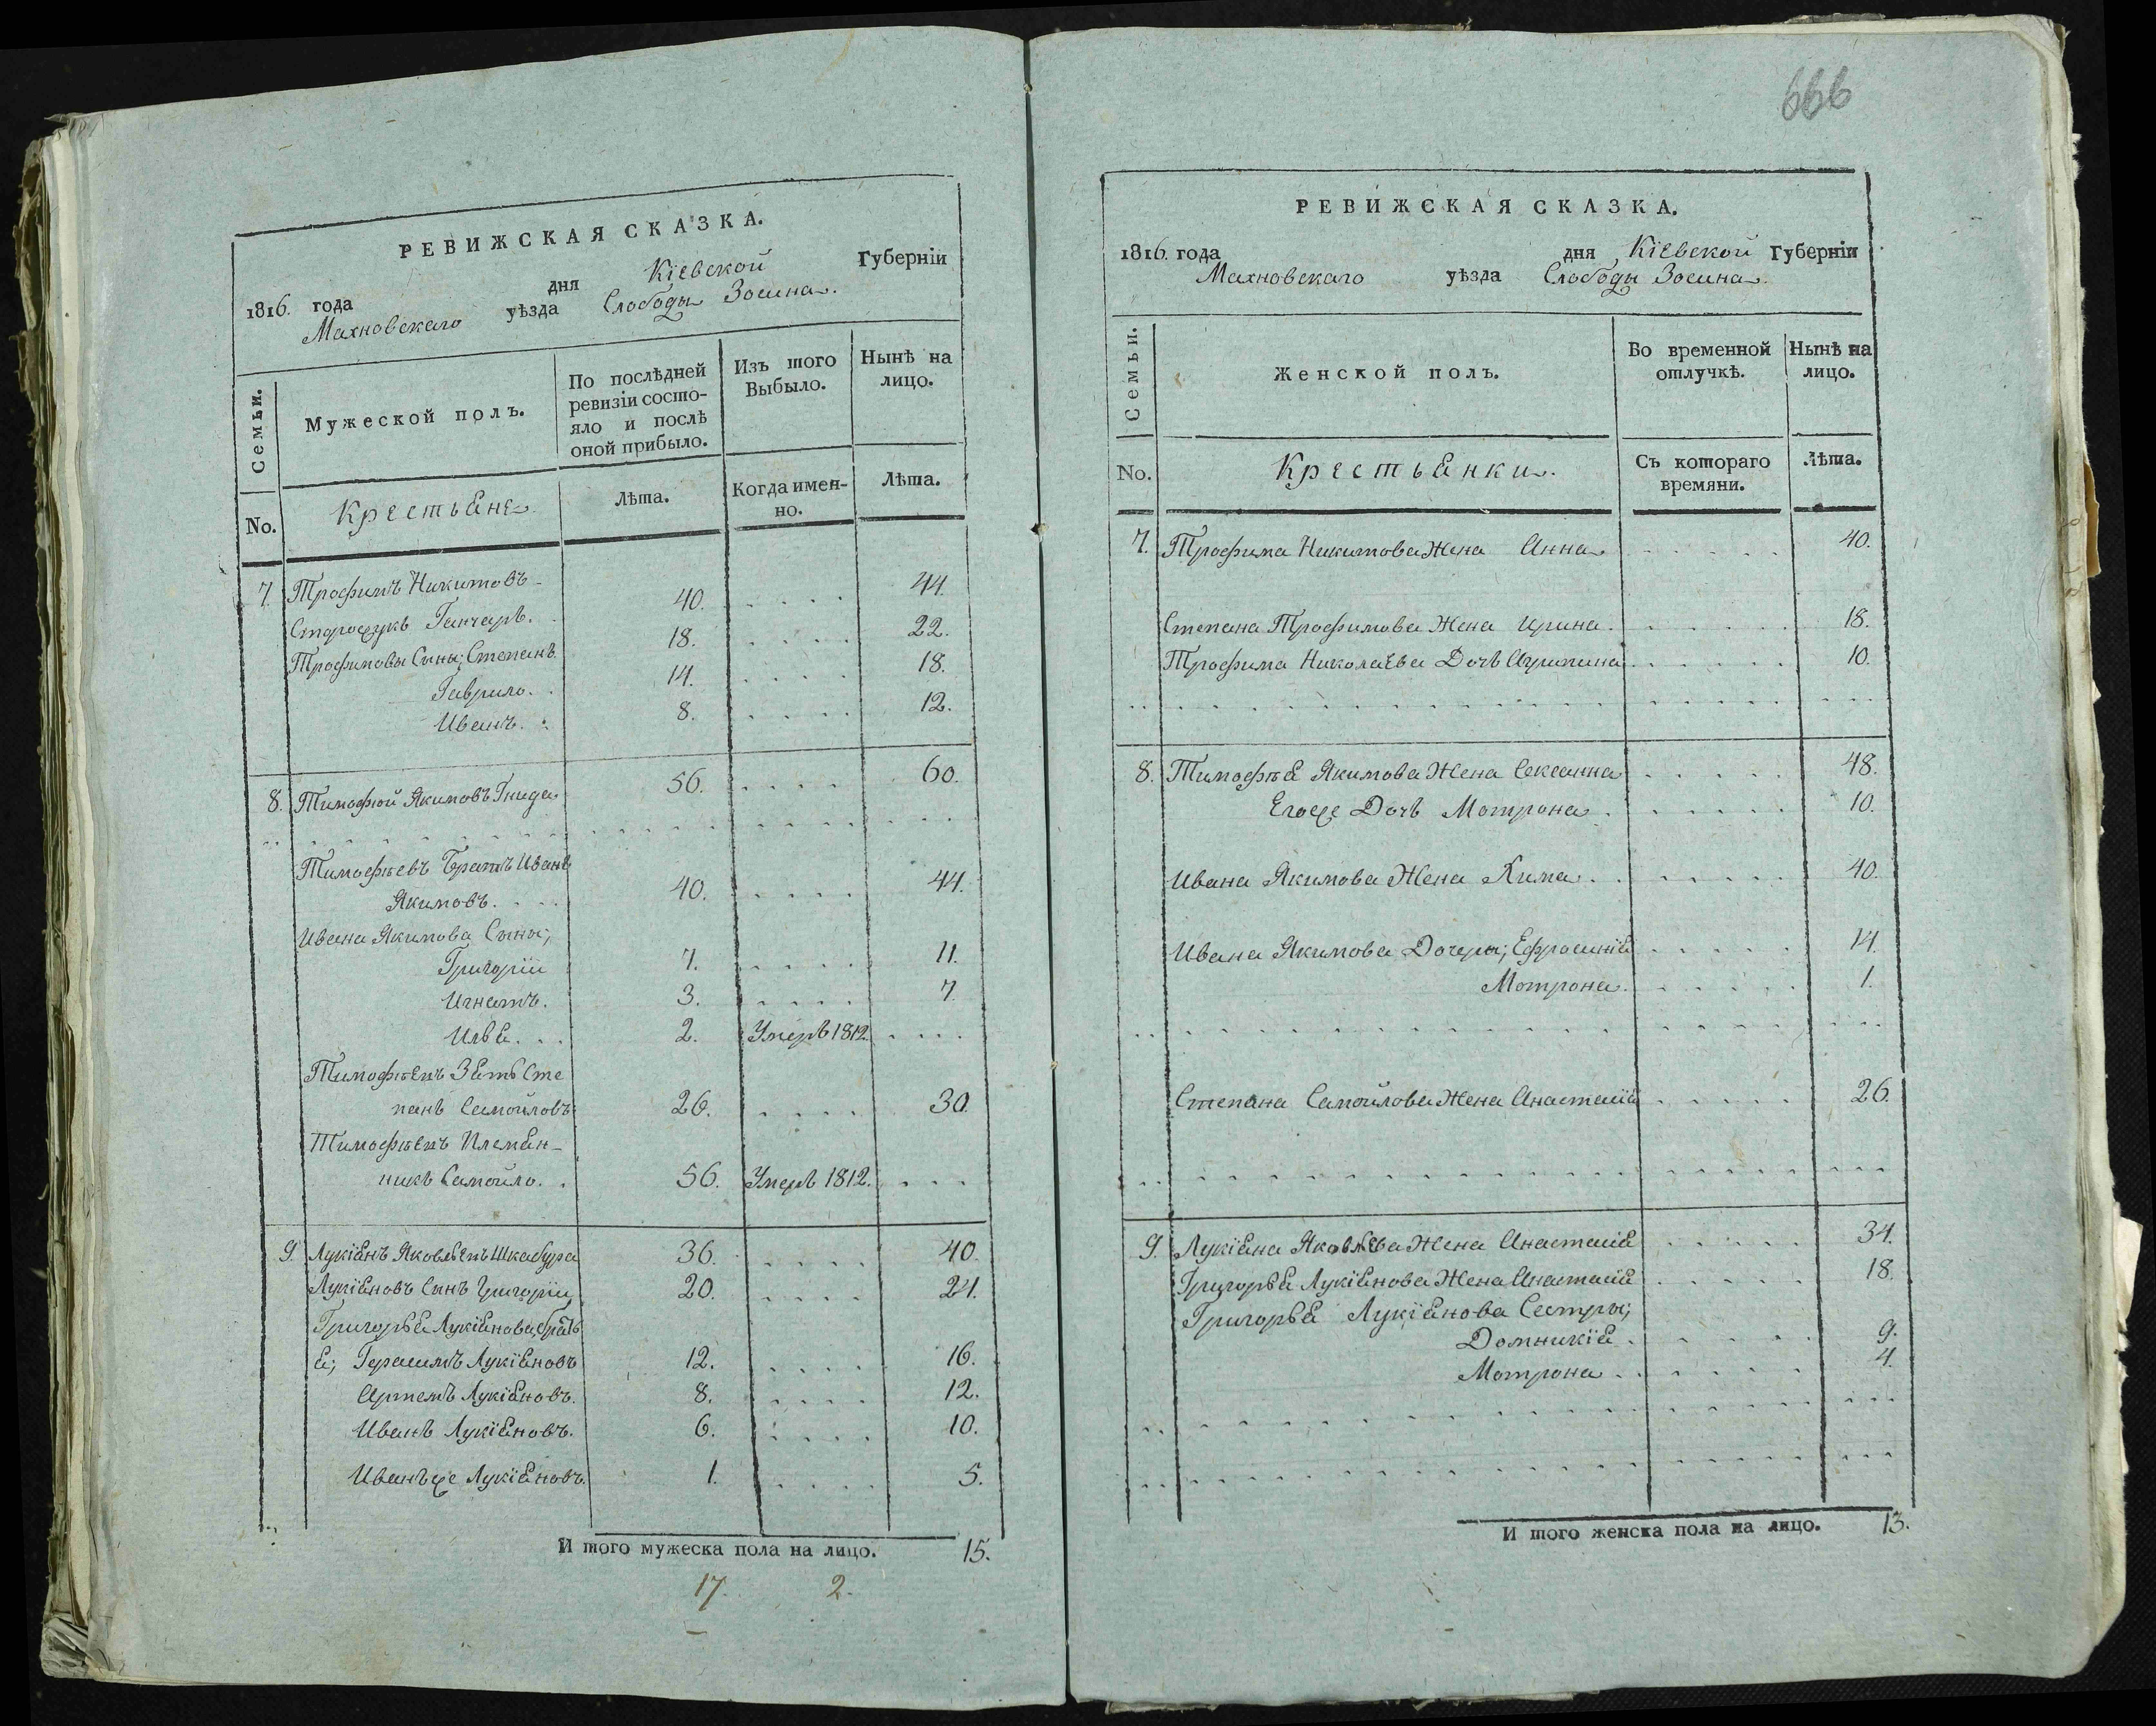 РЕВИЖСКАЯ СКАЗКА.
1816. года дня Кіевской Губерніи
Махновскаго уѣзда Слободы Зосина.
Семьи.
Мужеской полъ.
По послѣдней ревизіи состо-
яло и послѣ
оной прибыло.
Изъ того
Выбыло.
Нынѣ на
лицо.
No.
Крестьяне
Лѣта.
Когда имен-
но.
Лѣта.
7. Трофимъ Никитовъ
Старощукъ Ганчаръ. 40. 44.
Трофимовы Сыны; Степанъ 18. 22.
Гаврило. 14. 18.
Иванъ. 8. 12.
8. Тимофѣй Якимовъ Гнида 56. 60.
Тимофѣевъ Братъ Иванъ
Якимовъ. 40. 44.
Ивана Якимова Сыны;
Григорій 7. 11.
Игнатъ. 3. 7.
Илья. 2. Умеръ 1812.
Тимофѣевъ Зять Сте
панъ Самойловъ 26. 30.
Тимофѣевъ Племян-
никъ Самойло. 56. Умеръ 1812.
9. Лукіянъ Яковлевъ Шкабура 36. 40.
Лукіяновъ Сынъ Григорій 20. 24.
Григорья Лукіянова брать
я; Герасимъ Лукіяновъ 12. 16.
Артемъ Лукіяновъ. 8. 12.
Иванъ Лукіяновъ. 6. 10.
Иванъ же Лукіяновъ. 1. 5.
И того мужеска пола на лицо. 15.
17. 2.
666
РЕВИЖСКАЯ СКАЗКА.
1816. года дня Кіевской Губерніи
Махновскаго уѣзда Слободы Зосина.
Семьи.
Женской полъ.
Во временной
отлучкѣ.
Нынѣ на
лицо.
No.
Крестьянки.
Съ котораго
времяни.
Лѣта.
7. Трофима Никитова Жена Анна 40.
Степана Трофимова Жена Ирина. 18.
Трофима Николаева Дочь Агрипина 10.
8. Тимофѣя Якимова Жена Оксанна 48.
Егоже Дочь Мотрона. 10.
Ивана Якимова Жена Хима. 40.
Ивана Якимова Дочери; Ефросинія 14.
Мотрона. 1.
Степана Самойлова Жена Анастасія 26.
9. Лукіяна Яковлева Жена Анастасія 34.
Григорья Лукіянова Жена Анастасія 18.
Григорья Лукіянова Сестры;
Домникія. 9.
Мотрона. 4.
И того женска пола на лицо. 13.